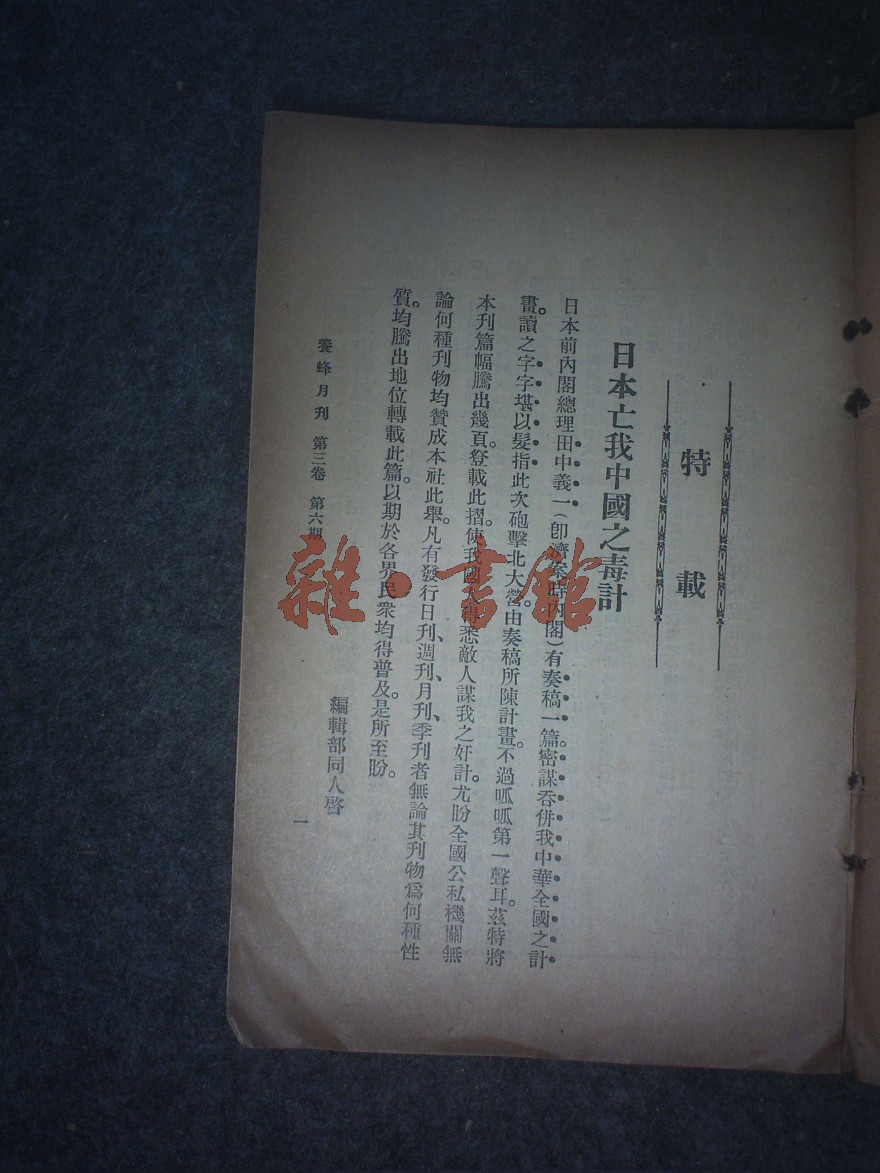 特載
日本亡我中國之毒計
日本前內閣總理田中義一(卽濟案時內閣)有奏稿一篇。密謀吞併我中華全國之計
畫。讀之字字堪以髮指此次砲擊北大營。由奏稿所陳計畫。不過呱呱第一聲耳。茲特將
本刊篇幅騰出幾頁。登載此摺。使我國人得悉敵人謀我之奸計。尤盼全國公私機關無
論何種刊物均贊成本社此舉。凡有發行日刊、週刊、月刊、季刊者無論其刊物爲何種性
質。均騰出地位轉載此篇。以期於各界民衆均得普及。是所至盼。
編輯部同人啓
養蜂月刊 第三卷 第六期
一
雜·書館